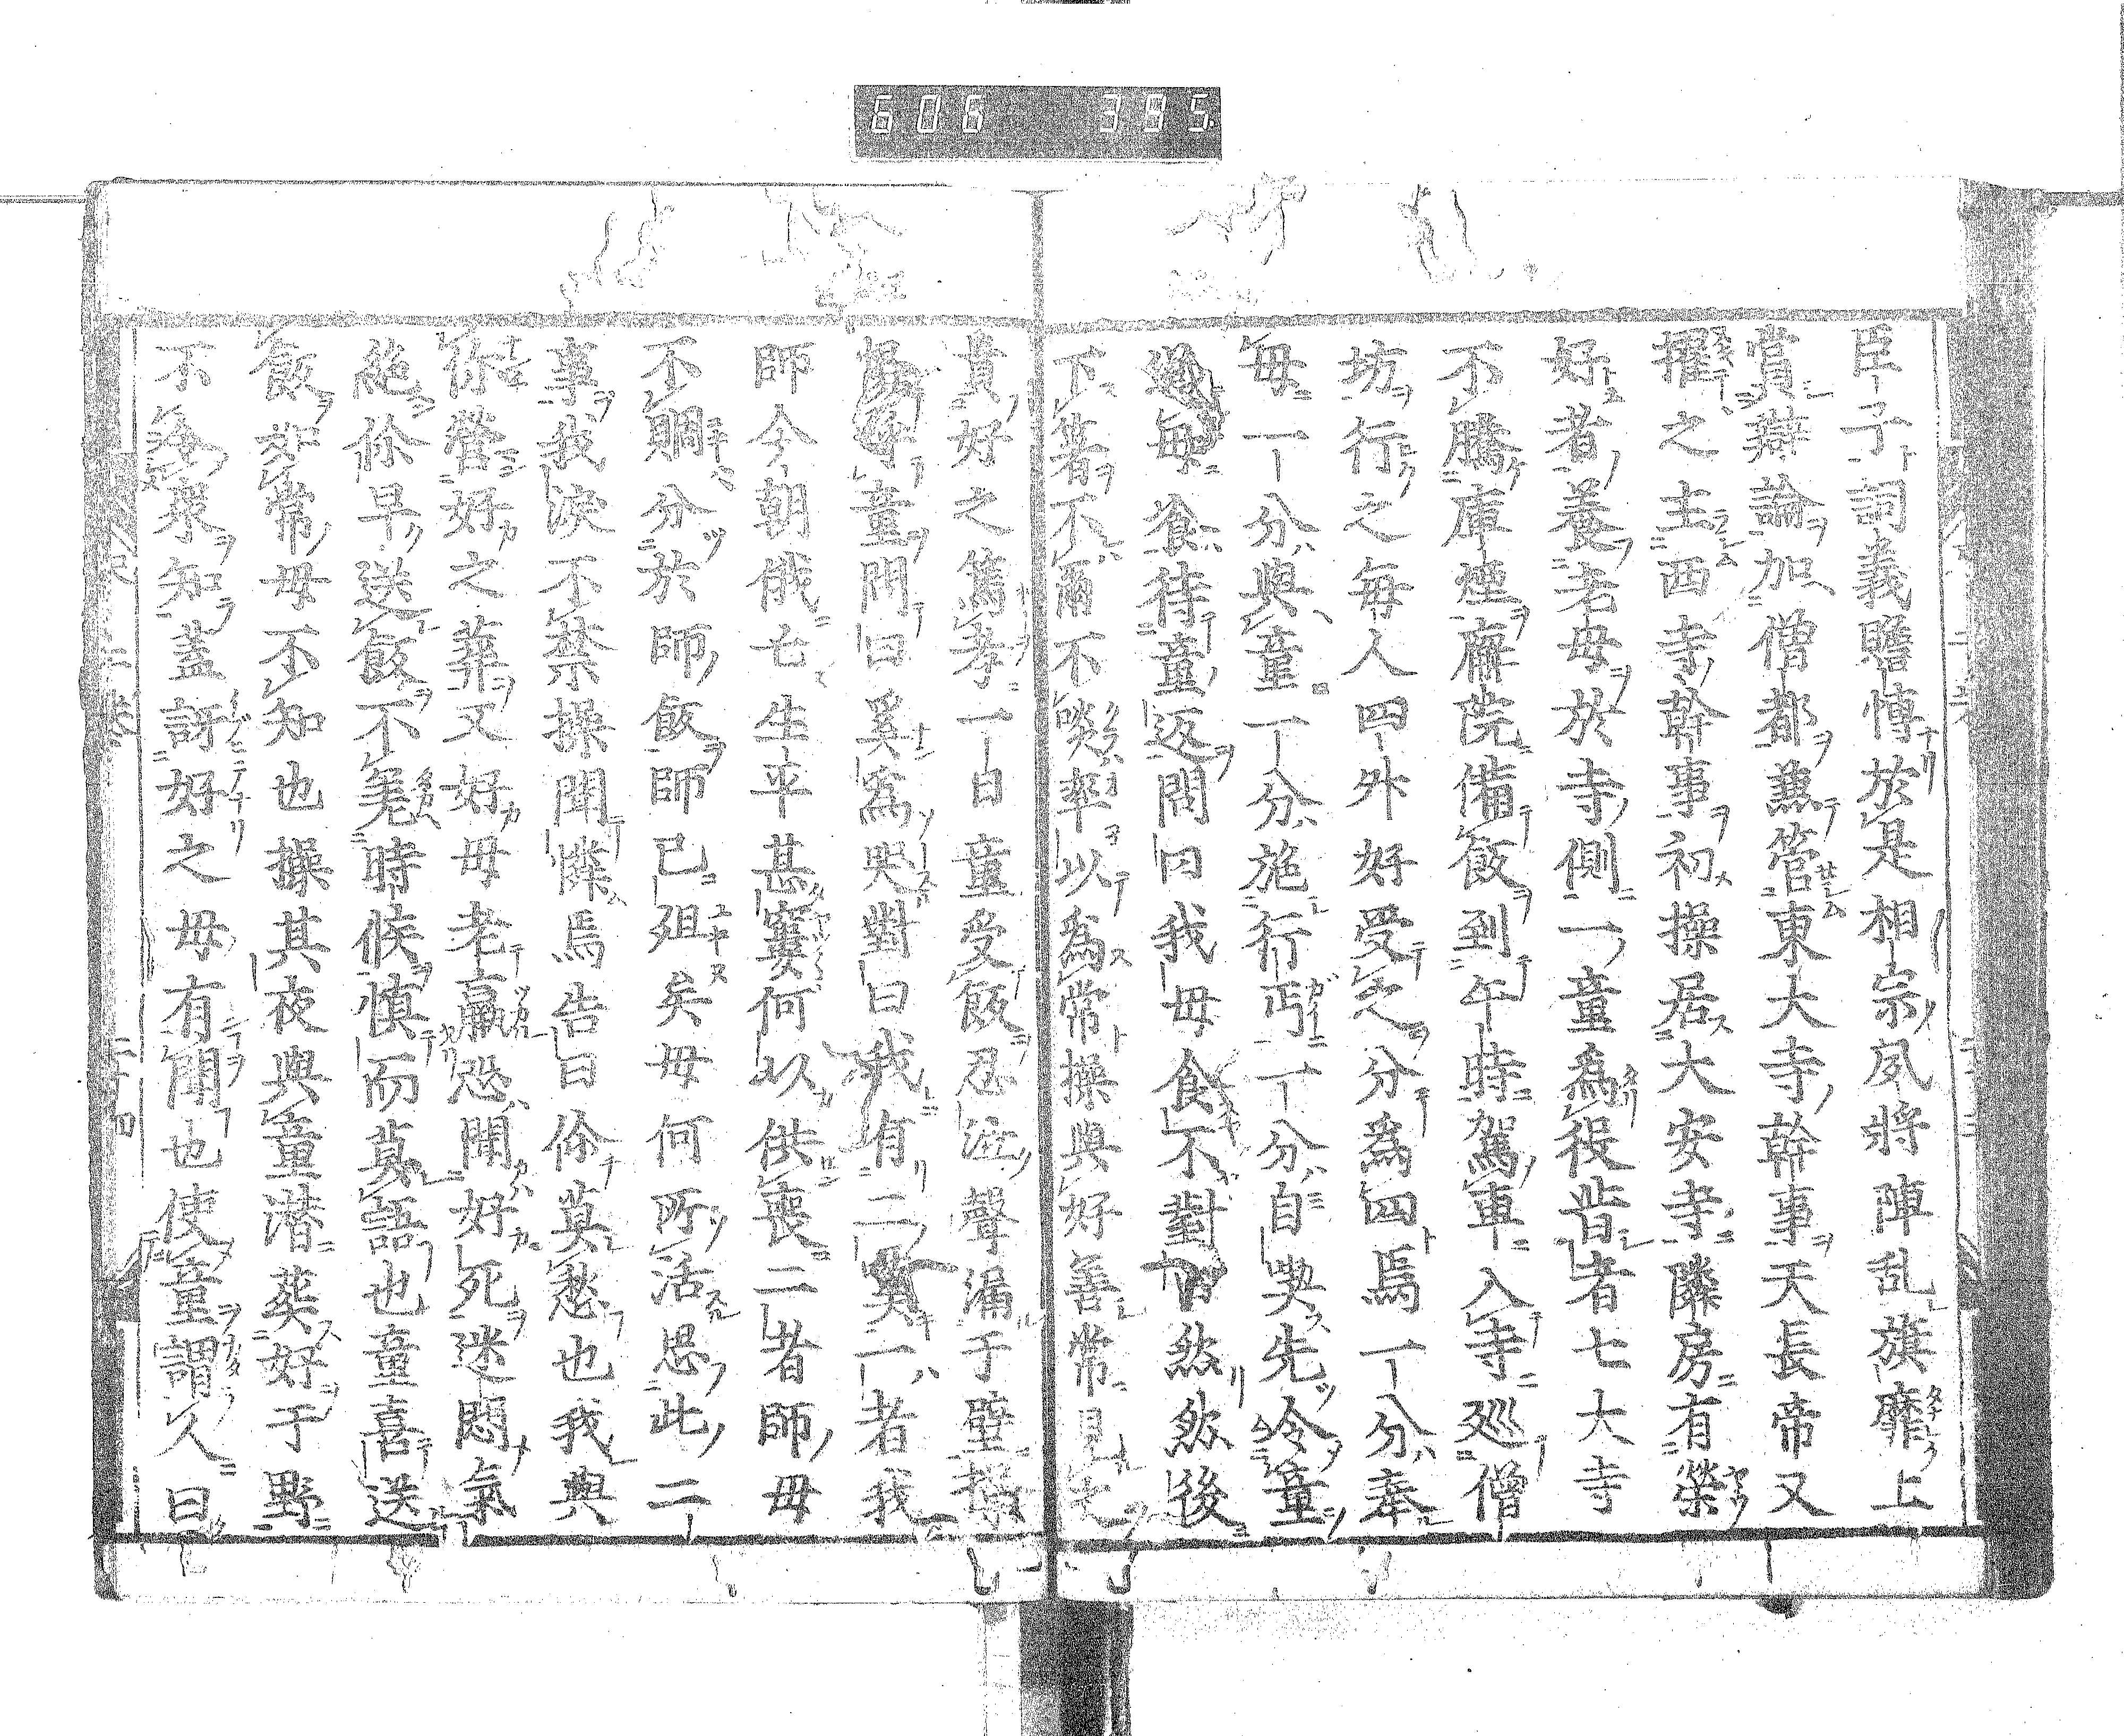 606 395
臣子詞義贍博於是相宗夙將陣乱旗靡上
賞辯論加僧都兼管東大寺幹事天長帝又
擢之主西寺幹事初操居大安寺隣房有榮
好者養老毋於寺側一童為役昔者七大寺
不騰庫煙廨院備飯到午時駕車入寺廵僧
坊行之毎人四外好受之分為四焉一分奉
毋一分與童一分施行丐一分自喫先令童
毋食待童返問曰我毋食不對曰然然後
下箸不爾不啖率以為常操與好善常見
貴好之篤孝一日童受飯忍泣聲漏于壁操
童問曰奚為哭對曰我有二一者我
師今朝俄亡生平甚窶何以供喪二者師毋
不賙分於師飯師已殂矣毋何所活思此二
事我淚不禁操聞惻焉告曰你莫愁也我與
你營好之葬又好毋老羸恐聞好死迷悶氣
絶你早送飯不差時候慎而莫語也童喜送
飯如常毋不知也操其夜與童潜葬好于野
不令衆知蓋訝好之毋有聞也使童謂人曰